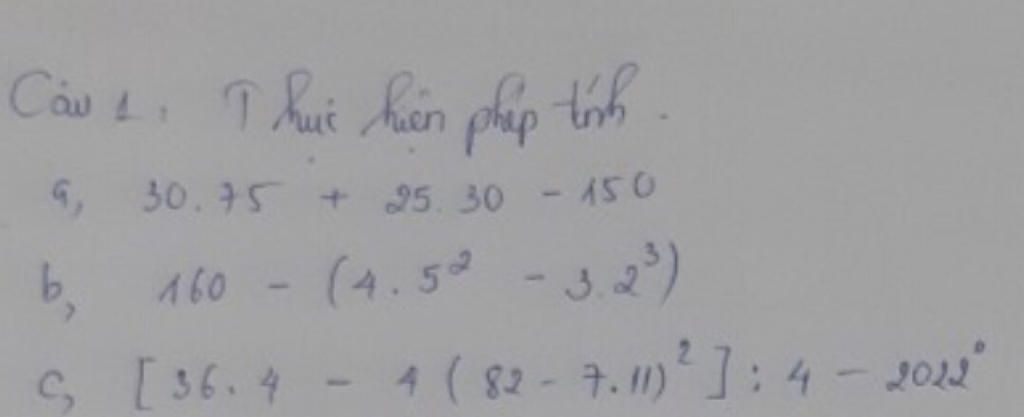 Câu 1. Thực hiện phép tính.
a, 30.75 + 25.30 - 150
b, 160 - (4.5² - 3.2³)
c, [36.4 - 4(82 - 7.11)²] : 4 - 2022⁰